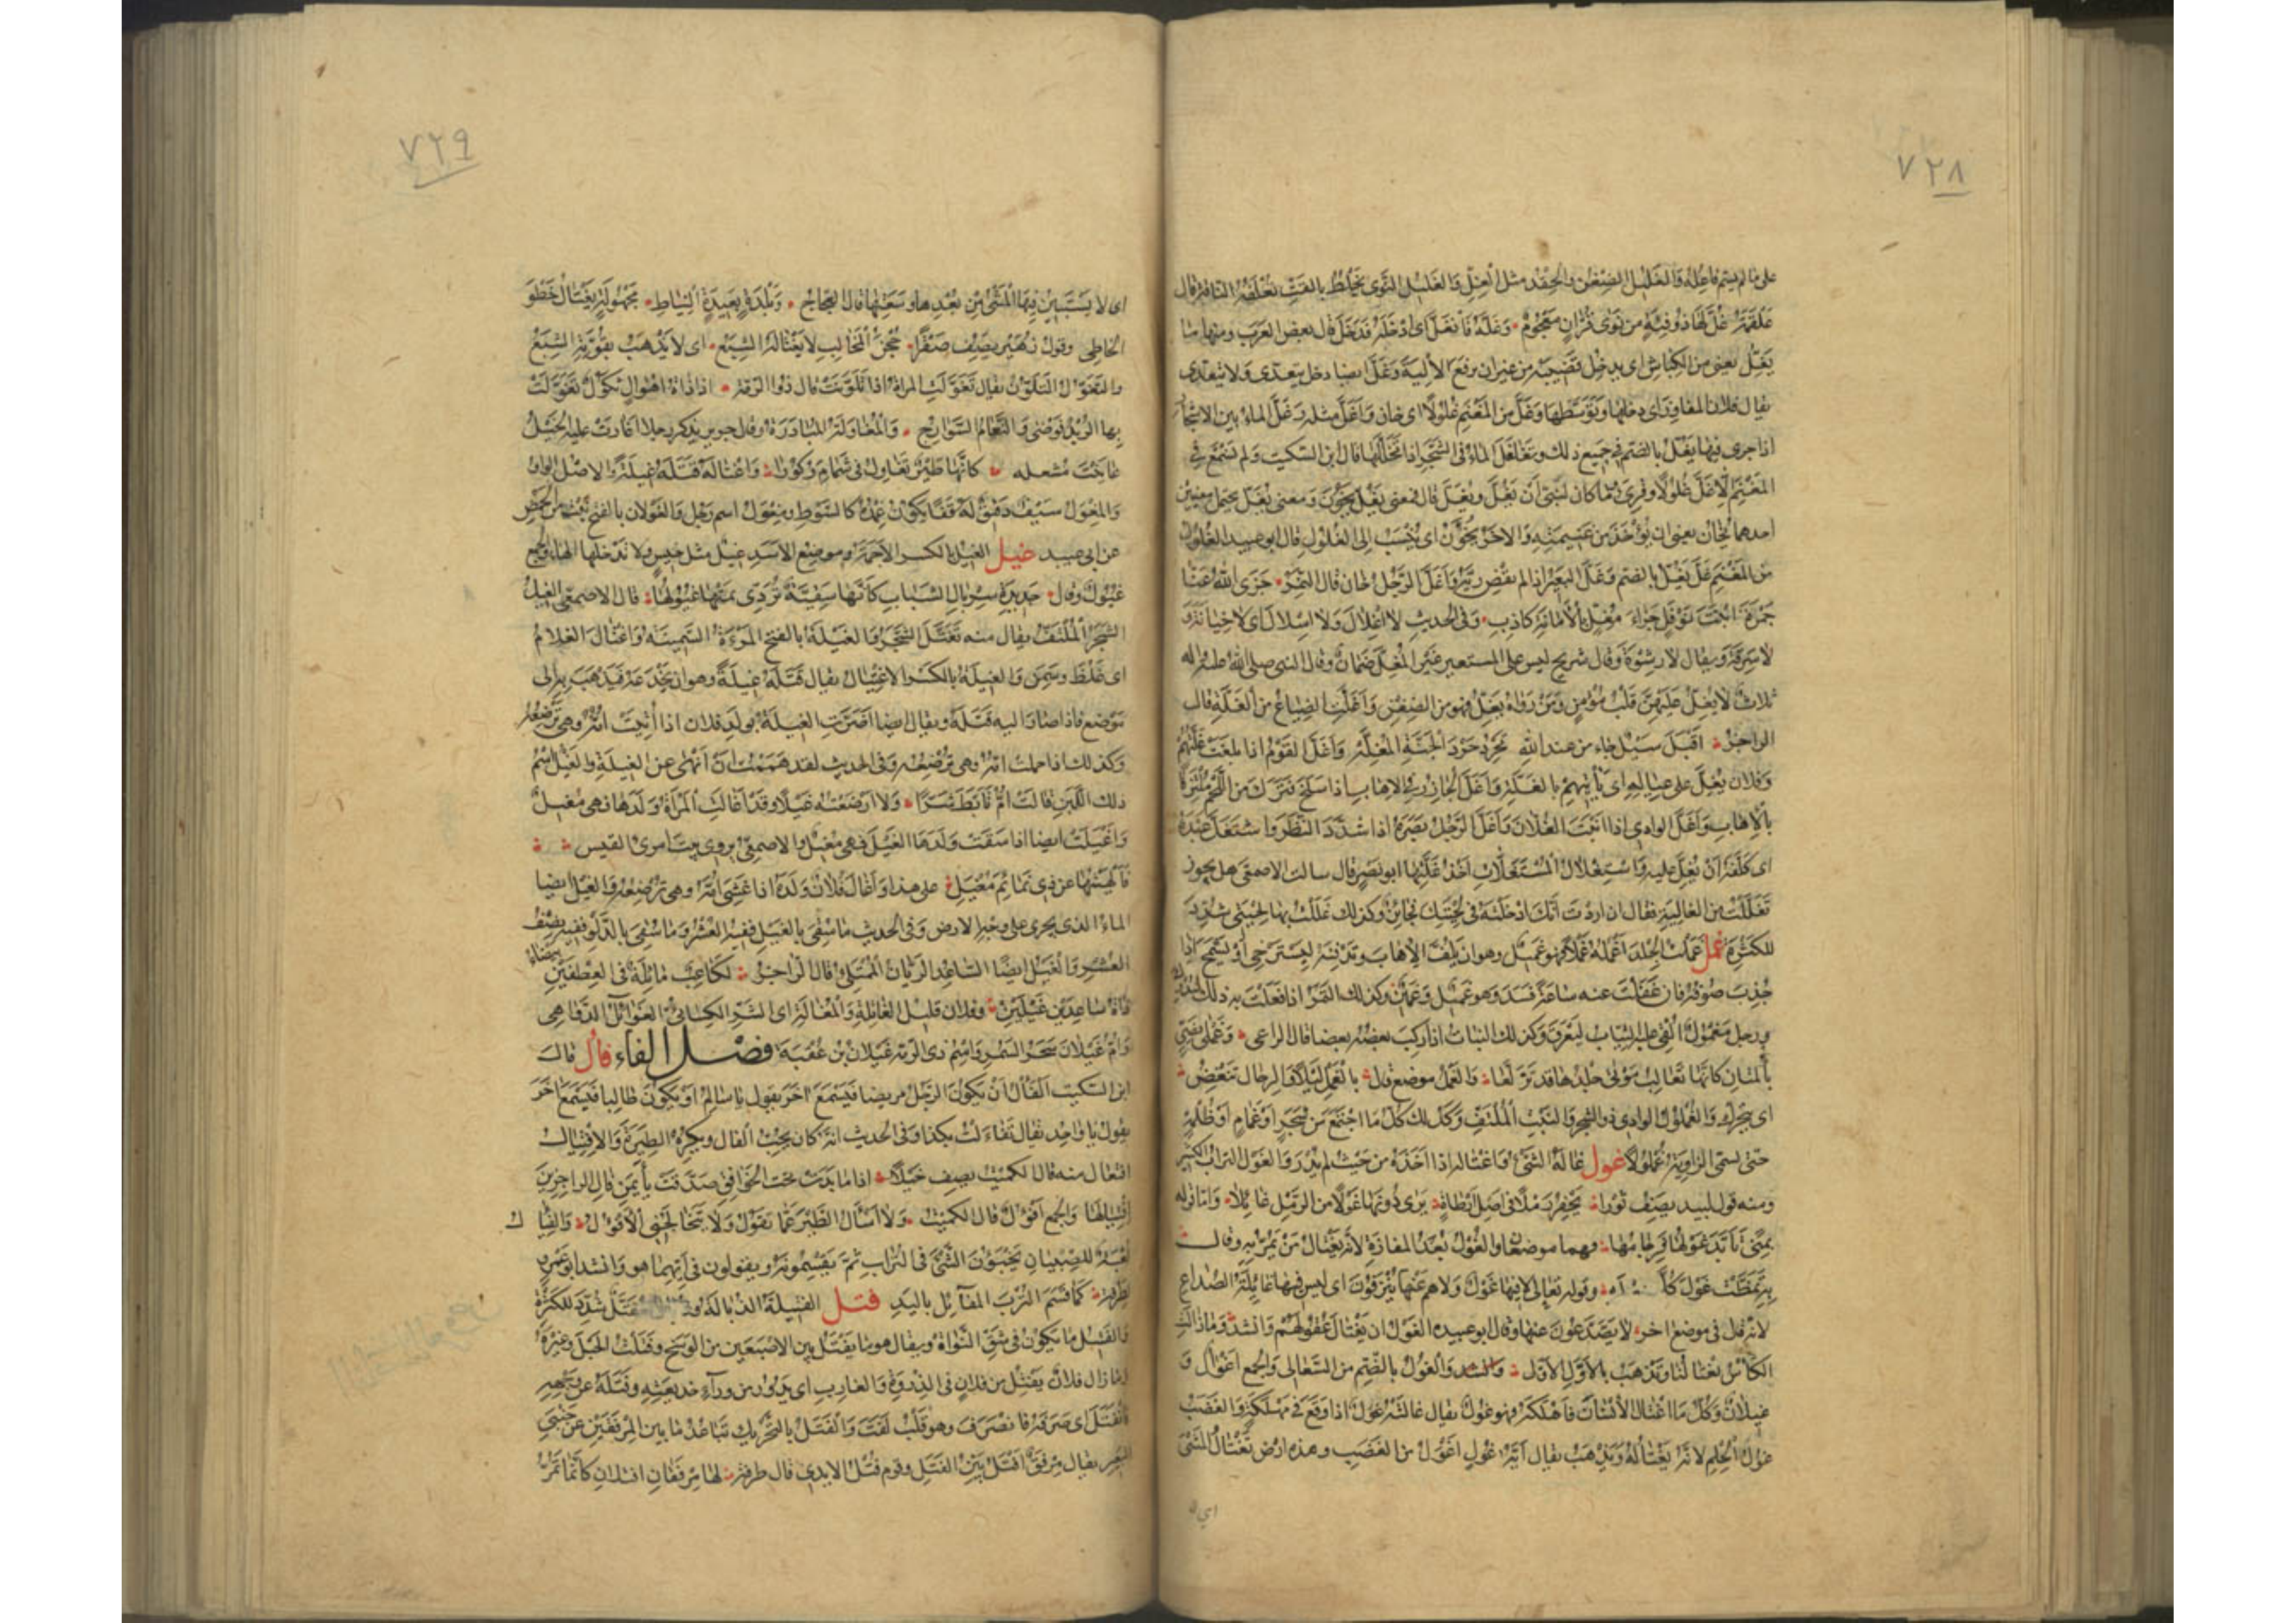 ٧٢٨
على ما لم يسم فاعله والغليل الضغن والحقد مثل الغل والغليل النوى يخلط بالقت تعلفه الناقة قال
علقمة غل لها ذو فيئة من نوى قران معجوم وغله فانغل اى ادخله فدخل قال بعض العرب ومنها ما
يغل يعنى من الكباش اى يدخل قضيبه من غير ان يرفع الالية وغل ايضا دخل يتعدى ولا يتعدى
يقال فلان المفاوز اى دخلها وتوسطها وغل من المغنم غلولا اى خان واغل مثله وغل الماء بين الاشجار
اذا جرى فيها يغل بالضم فى جميع ذلك وتغلغل الماء فى الشجر اذا تخللها قال ابن السكيت ولم نسمع فى
المغنم الا غل غلولا وقرئ وما كان لنبى ان يغل ويغل قال فمعنى يغل يخون ومعنى يغل يحتمل معنيين
احدهما يخان يعنى ان يؤخذ من غنيمته والاخر يخون اى ينسب الى الغلول قال ابو عبيد الغلول
من المغنم غل يغل بالضم وغل البعير اذا لم يقض ريه واغل الرجل خان قال النمر جزى الله عنا
جمرة ابنة نوفل جزاء مغل بالامانة كاذب وفى الحديث لا اغلال ولا اسلال اى لا خيانة و
لا سرقة ويقال لا رشوة وقال شريح ليس على المستعير غير المغل ضمان وقال النبى صلى الله عليه واله
ثلاث لا يغل عليهن قلب مؤمن ومن رواه يغل فهو من الضغن واغلت الضياع من الغلة قال
الراجز اقبل سيل جاء من عند الله يحرد حرد الجنة المغلة واغل القوم اذا بلغت غلتهم
وفلان يغل على عياله اى يأتيهم بالغلة واغل الجازر فى الاهاب اذا سلخ فترك من اللحم ملتزقا
بالاهاب واغل الوادى اذا انبت الغلان واغل الرجل بصره اذا شدد النظر واستغل عبده
اى كلفه ان يغل عليه واستغلال المستغلات اخذ غلتها ابو نصر قال سالت الاصمعى هل يجوز
تغللت من الغالية فقال ان اردت انك ادخلته فى لحيتك فجائز وكذلك غللت بها لحيتى شدد
للكثرة غمل غملت الجلد اغمله غملا فهو غميل وهو ان يلف الاهاب وتدفنه ليسترخى او يسمح اذا
جذب صوفه فان غفلت عنه ساعة فسد وهو غميل وغمين وكذلك التمر اذا فعلت به ذلك ليدرك
ورجل مغمول القى عليه الثياب ليعرق وكذلك النبات اذا ركب بعضه بعضا قال الراعى وغملى نصى
بالمتان كانها ثعالب موتى جلدها قد تزلعا والغمل موضع قال بالغمل ليلا والرجال تنغض
اى تتحرك والغملول الوادى ذو الشجر والنبت الملتف وكذلك كل ما اجتمع من شجر او غمام او ظلمة
حتى تسمى الزاوية غملولا غول غاله الشئ واغتاله اذا اخذه من حيث لم يدر والغول التراب الكثير
ومنه قول لبيد يصف ثورا يحفر رملا فى اصل ارطاة يرى دونها غولا من الرمل غائلا واما قوله
بمنى تأبد غولها فرجامها فهما موضعان والغول بعد المفازة لانه يغتال من يمر به وقال
به تمطت غول كل وقوله تعالى لا فيها غول ولا هم عنها ينزفون اى ليس فيها غائلة الصداع
لانه قال فى موضع اخر لا يصدعون عنها وقال ابو عبيده الغول ان يغتال عقولهم وانشد وما زالت
الكأس تغتالنا وتذهب بالاول الاول والغول بالضم من السعالى والجمع اغوال و
غيلان وكل ما اغتال الانسان فاهلكه فهو غول يقال غالته غول اذا وقع فى مهلكة والغضب
غول الحلم لانه يغتاله ويذهب يقال اية غول اغول من الغضب وهذه ارض تغتال المشى
اى لا
٧٢٩
اى لا يستبين فيها المشى من بعدها وسعتها قال العجاج وبلدة بعيدة النياط مجهولة يغتال خطو
الخاطى وقول زهير يصف صقرا حجن المخالب لا يغتاله الشبع اى لا يذهب بقوته الشبع
والتغول التلون يقال تغولت المراة اذا تلونت قال ذو الرمة اذا ذات اهوال ثكول تغولت
بها الربد فوضى والنعام السوارح والمغاولة المبادرة وقال جرير يذكر رجلا اغارت عليه الخيل
عاينت مشعله كانها طير تغاول فى شمام وكورا واغتاله قتله غيلة والاصل الواو
والمغول سيف دقيق له قفا يكون غمده كالسوط ومغول اسم رجل والغولان بالفتح نبت من الحمض
عن ابى عبيد غيل الغيل بالكسر الاجمة وموضع الاسد غيل مثل خيس ولا تدخلها الهاء والجمع
غيول وقال جديدة سربال الشباب كانها سقية بردى نمتها غيولها قال الاصمعى الغيل
الشجر الملتف يقال منه تغيل الشجر والغيلة بالفتح المرءة السمينه واغتال الغلام
اى غلظ وسمن والغيلة بالكسر الاغتيال يقال قتله غيلة وهو ان يخدعه فيذهب به الى
موضع فاذا صار اليه قتله ويقال ايضا اضرت الغيلة بولد فلان اذا اتيت امه وهى ترضعه
وكذلك اذا حملت امه وهى ترضعه وفى الحديث لقد هممت ان انهى عن الغيلة والغيل اسم
ذلك اللبن قالت ام تأبط شرا ولا ارضعته غيلا وقد اغالت المرأة ولدها فهى مغيل
واغيلت ايضا اذا سقت ولدها الغيل فهى مغيل والاصمعى يروى بيت امرئ القيس
فالهيتها عن ذى تمائم مغيل على هذا واغال فلان ولده اذا غشى امه وهى ترضعه والغيل ايضا
الماء الذى يجرى على وجه الارض وفى الحديث ما سقى بالغيل ففيه العشر وما سقى بالدلو ففيه نصف
العشر والغيل ايضا الساعد الريان الممتلئ قال الراجز لكاعب مائلة فى العطفين بيضاء
ذات ساعدين غيلين وفلان قليل الغائلة والمغالة اى الشر الكسائى الغوائل الدواهى
وام غيلان شجر السمر واسم ذى الرمة غيلان بن عقبة فصل الفاء فأل قال
ابن السكيت الفأل ان يكون الرجل مريضا فيسمع اخر يقول يا سالم او يكون طالبا فيسمع اخر
يقول يا واجد يقال تفاءلت بكذا وفى الحديث انه كان يحب الفال ويكره الطيرة والافتيال
افتعال منه قال الكميت يصف خيلا اذا ما بدت تحت الخوافق صدقت بأيمن فال الزاجرين
افتيالها والجمع افؤل قال الكميت ولا اسأل الطير عما تقول ولا تتخالجنى الافؤل والفيال
لعبة للصبيان يخبؤن الشئ فى التراب ثم يقسمونه ويقولون فى ايهما هو وانشد ابو عمرو
لطرفة كما قسم الترب المفائل باليد فتل الفتيلة الذبالة وذبال مفتل شدد للكثرة
والفتيل ما يكون فى شق النواة ويقال هو ما يفتل بين الاصبعين من الوسخ وفتلت الحبل وغيره
وما زال فلان يفتل من فلان فى الذروة والغارب اى يدور من وراء خديعته وفتله عن وجهه
فانفتل اى صرفه فانصرف وهو قلب لفت والفتل بالتحريك تباعد ما بين المرفقين عن جنبى
البعير يقال مرفق افتل بين الفتل وقوم فتل الايدى قال طرفة لها مرفقان افتلان كأنما تمر